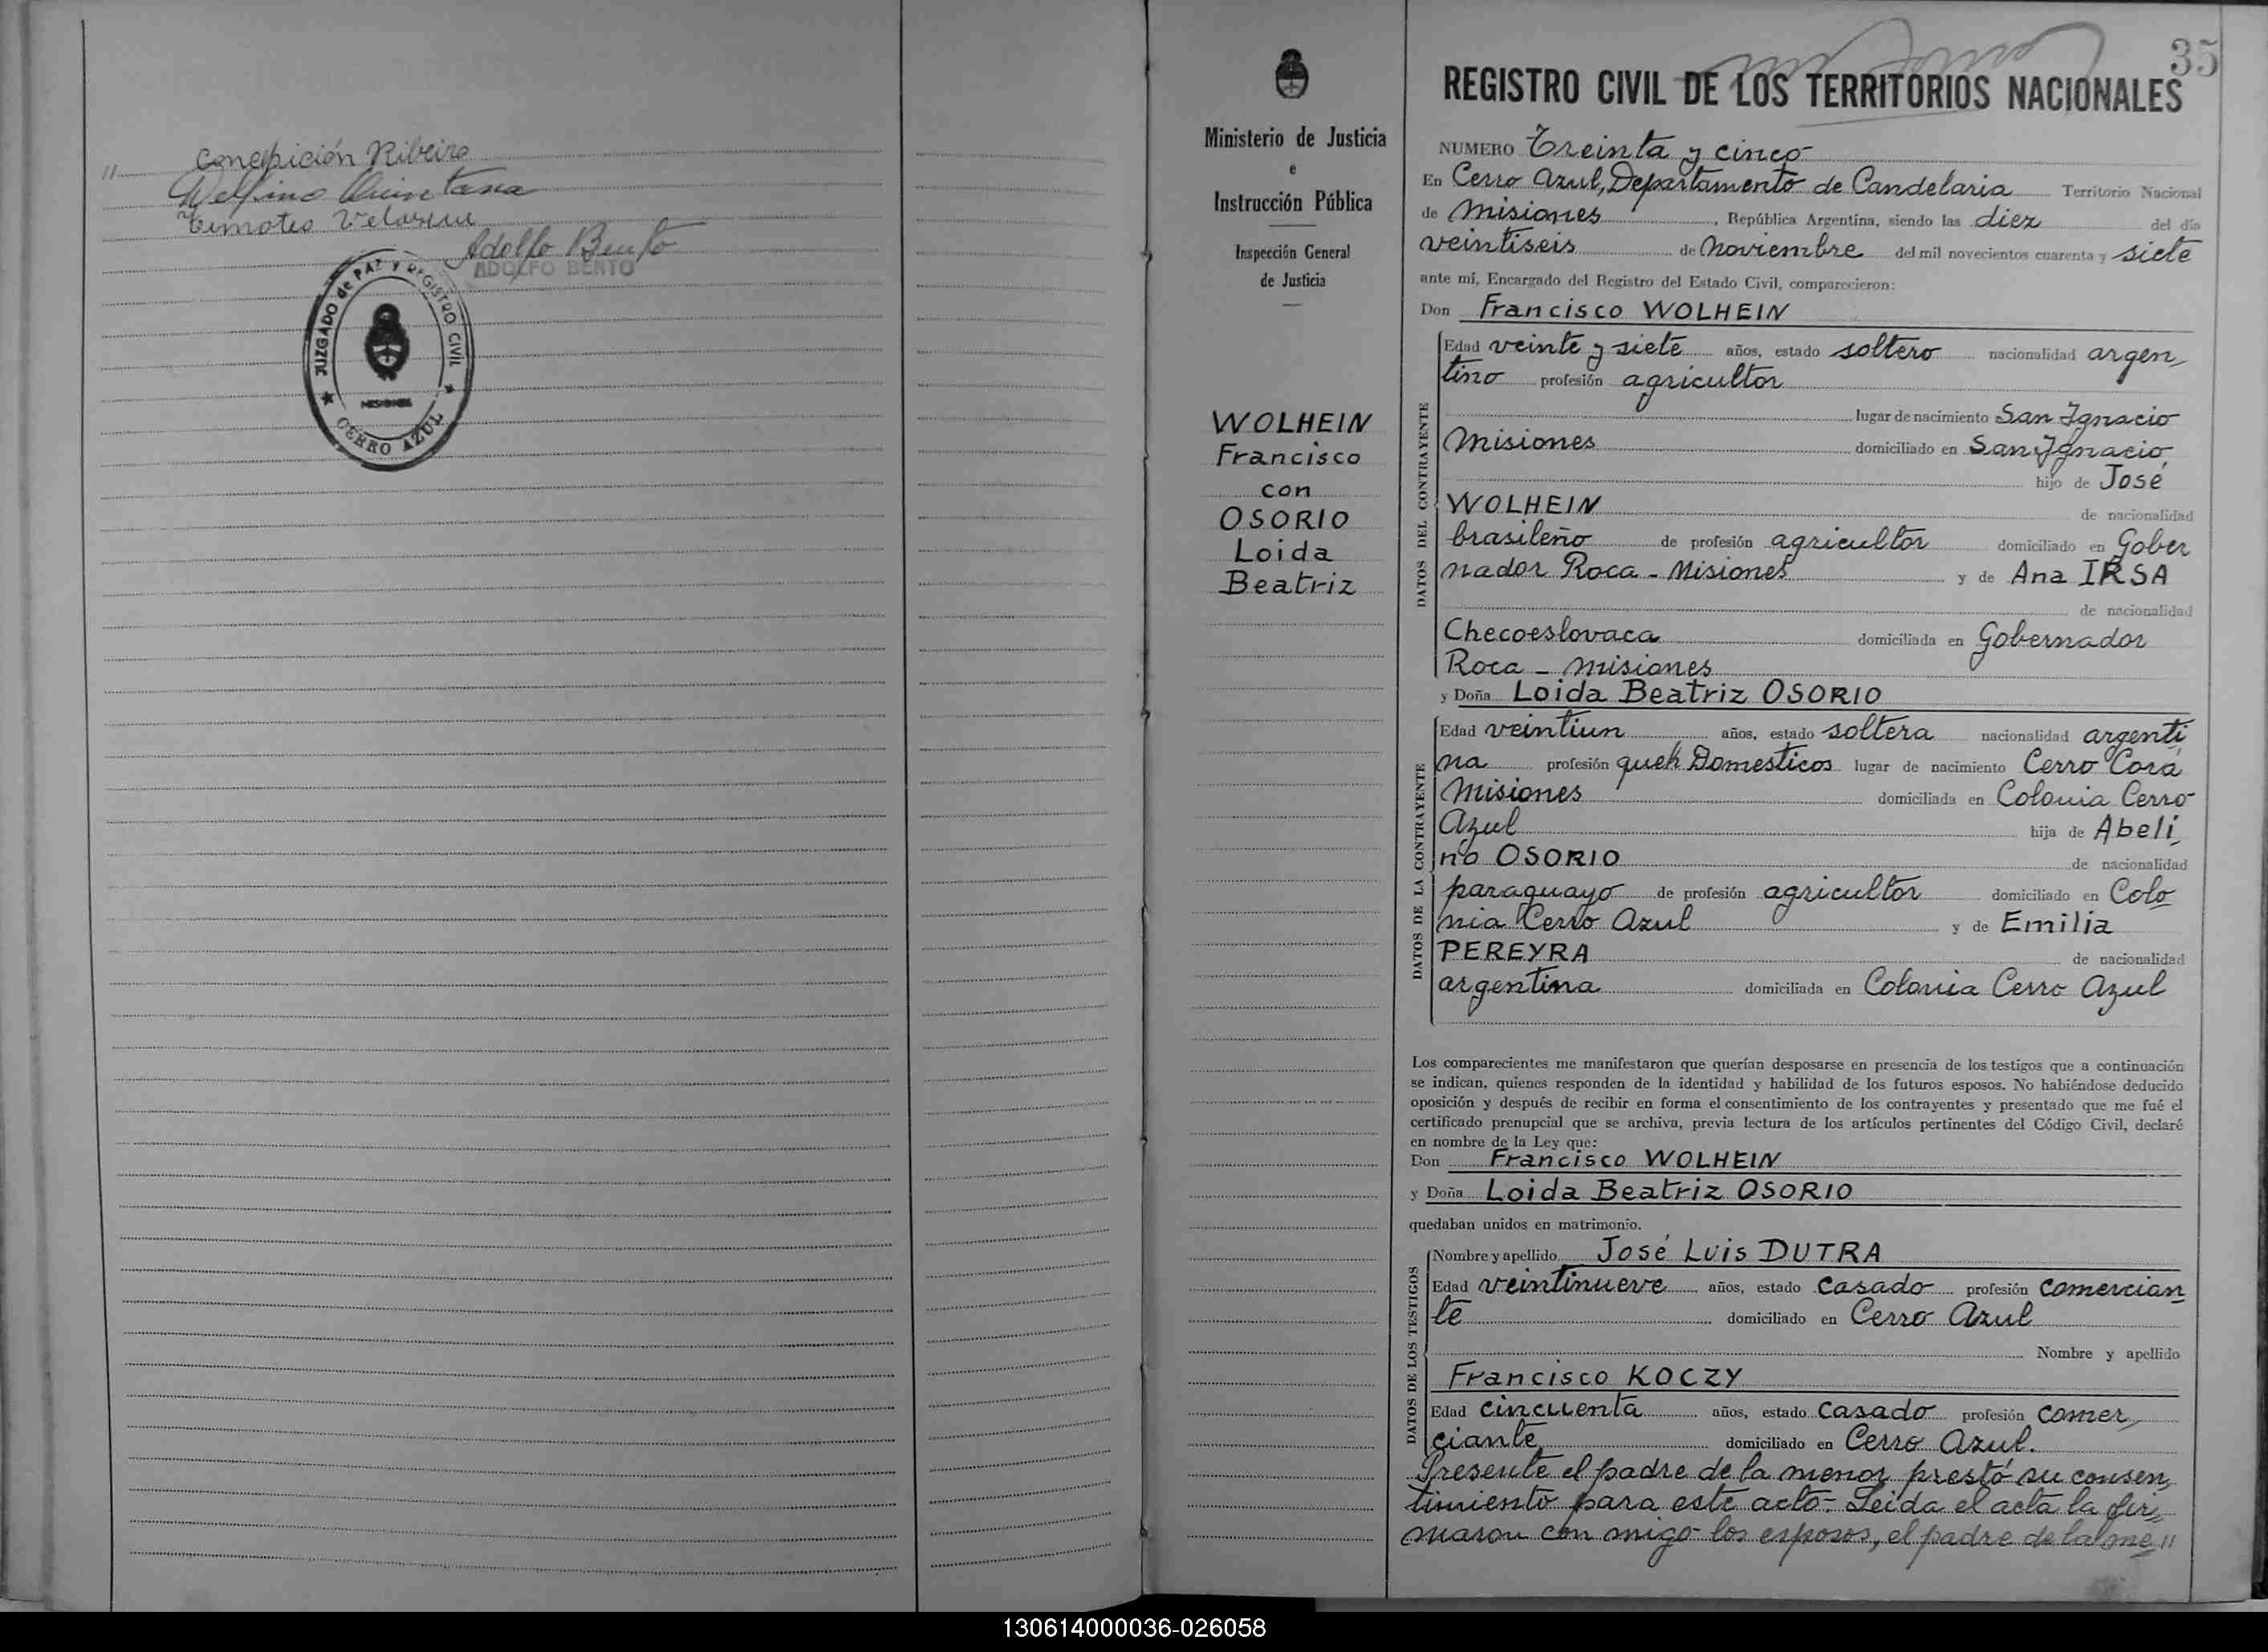 " Concepición Ribeiro
Delfino Quintana
Timoteo Velasque
Adolfo Bento
ADOLFO BENTO
JUZGADO de PAZ y REGISTRO CIVIL
MISIONES
CERRO AZUL
Ministerio de Justicia
e
Instrucción Pública
Inspección General
de Justicia
WOLHEIN
Francisco
con
OSORIO
Loida
Beatriz
35
REGISTRO CIVIL DE LOS TERRITORIOS NACIONALES
NUMERO Treinta y cinco
En Cerro Azul, Departamento de Candelaria Territorio Nacional
de Misiones, República Argentina, siendo las diez del día
veintiseis de Noviembre del mil novecientos cuarenta y siete
ante mí, Encargado del Registro del Estado Civil, comparecieron:
Don Francisco WOLHEIN
DATOS DEL CONTRAYENTE
Edad veinte y siete años, estado soltero nacionalidad argen,
tino profesión agricultor
lugar de nacimiento San Ignacio
Misiones domiciliado en San Ignacio
hijo de José
WOLHEIN de nacionalidad
brasileño de profesión agricultor domiciliado en Gober
nador Roca - Misiones y de Ana IRSA
de nacionalidad
Checoeslovaca domiciliada en Gobernador
Roca - Misiones
y Doña Loida Beatriz OSORIO
DATOS DE LA CONTRAYENTE
Edad veintiun años, estado soltera nacionalidad argenti,
na profesión queh Domesticos lugar de nacimiento Cerro Corá
Misiones domiciliada en Colonia Cerro
Azul hija de Abeli,
no OSORIO de nacionalidad
paraguayo de profesión agricultor domiciliado en Colo
nia Cerro Azul y de Emilia
PEREYRA de nacionalidad
argentina domiciliada en Colonia Cerro Azul
Los comparecientes me manifestaron que querían desposarse en presencia de los testigos que a continuación
se indican, quienes responden de la identidad y habilidad de los futuros esposos. No habiéndose deducido
oposición y después de recibir en forma el consentimiento de los contrayentes y presentado que me fué el
certificado prenupcial que se archiva, previa lectura de los artículos pertinentes del Código Civil, declaré
en nombre de la Ley que:
Don Francisco WOLHEIN
y Doña Loida Beatriz OSORIO
quedaban unidos en matrimonio.
DATOS DE LOS TESTIGOS
Nombre y apellido José Luis DUTRA
Edad veintinueve años, estado casado profesión comercian
te domiciliado en Cerro Azul
Nombre y apellido
Francisco KOCZY
Edad cincuenta años, estado casado profesión comer,
ciante domiciliado en Cerro Azul.
Presente el padre de la menor prestó su consen,
timiento para este acto - Leida el acta la fir,
maron con migo los esposos, el padre de la me "
130614000036-026058